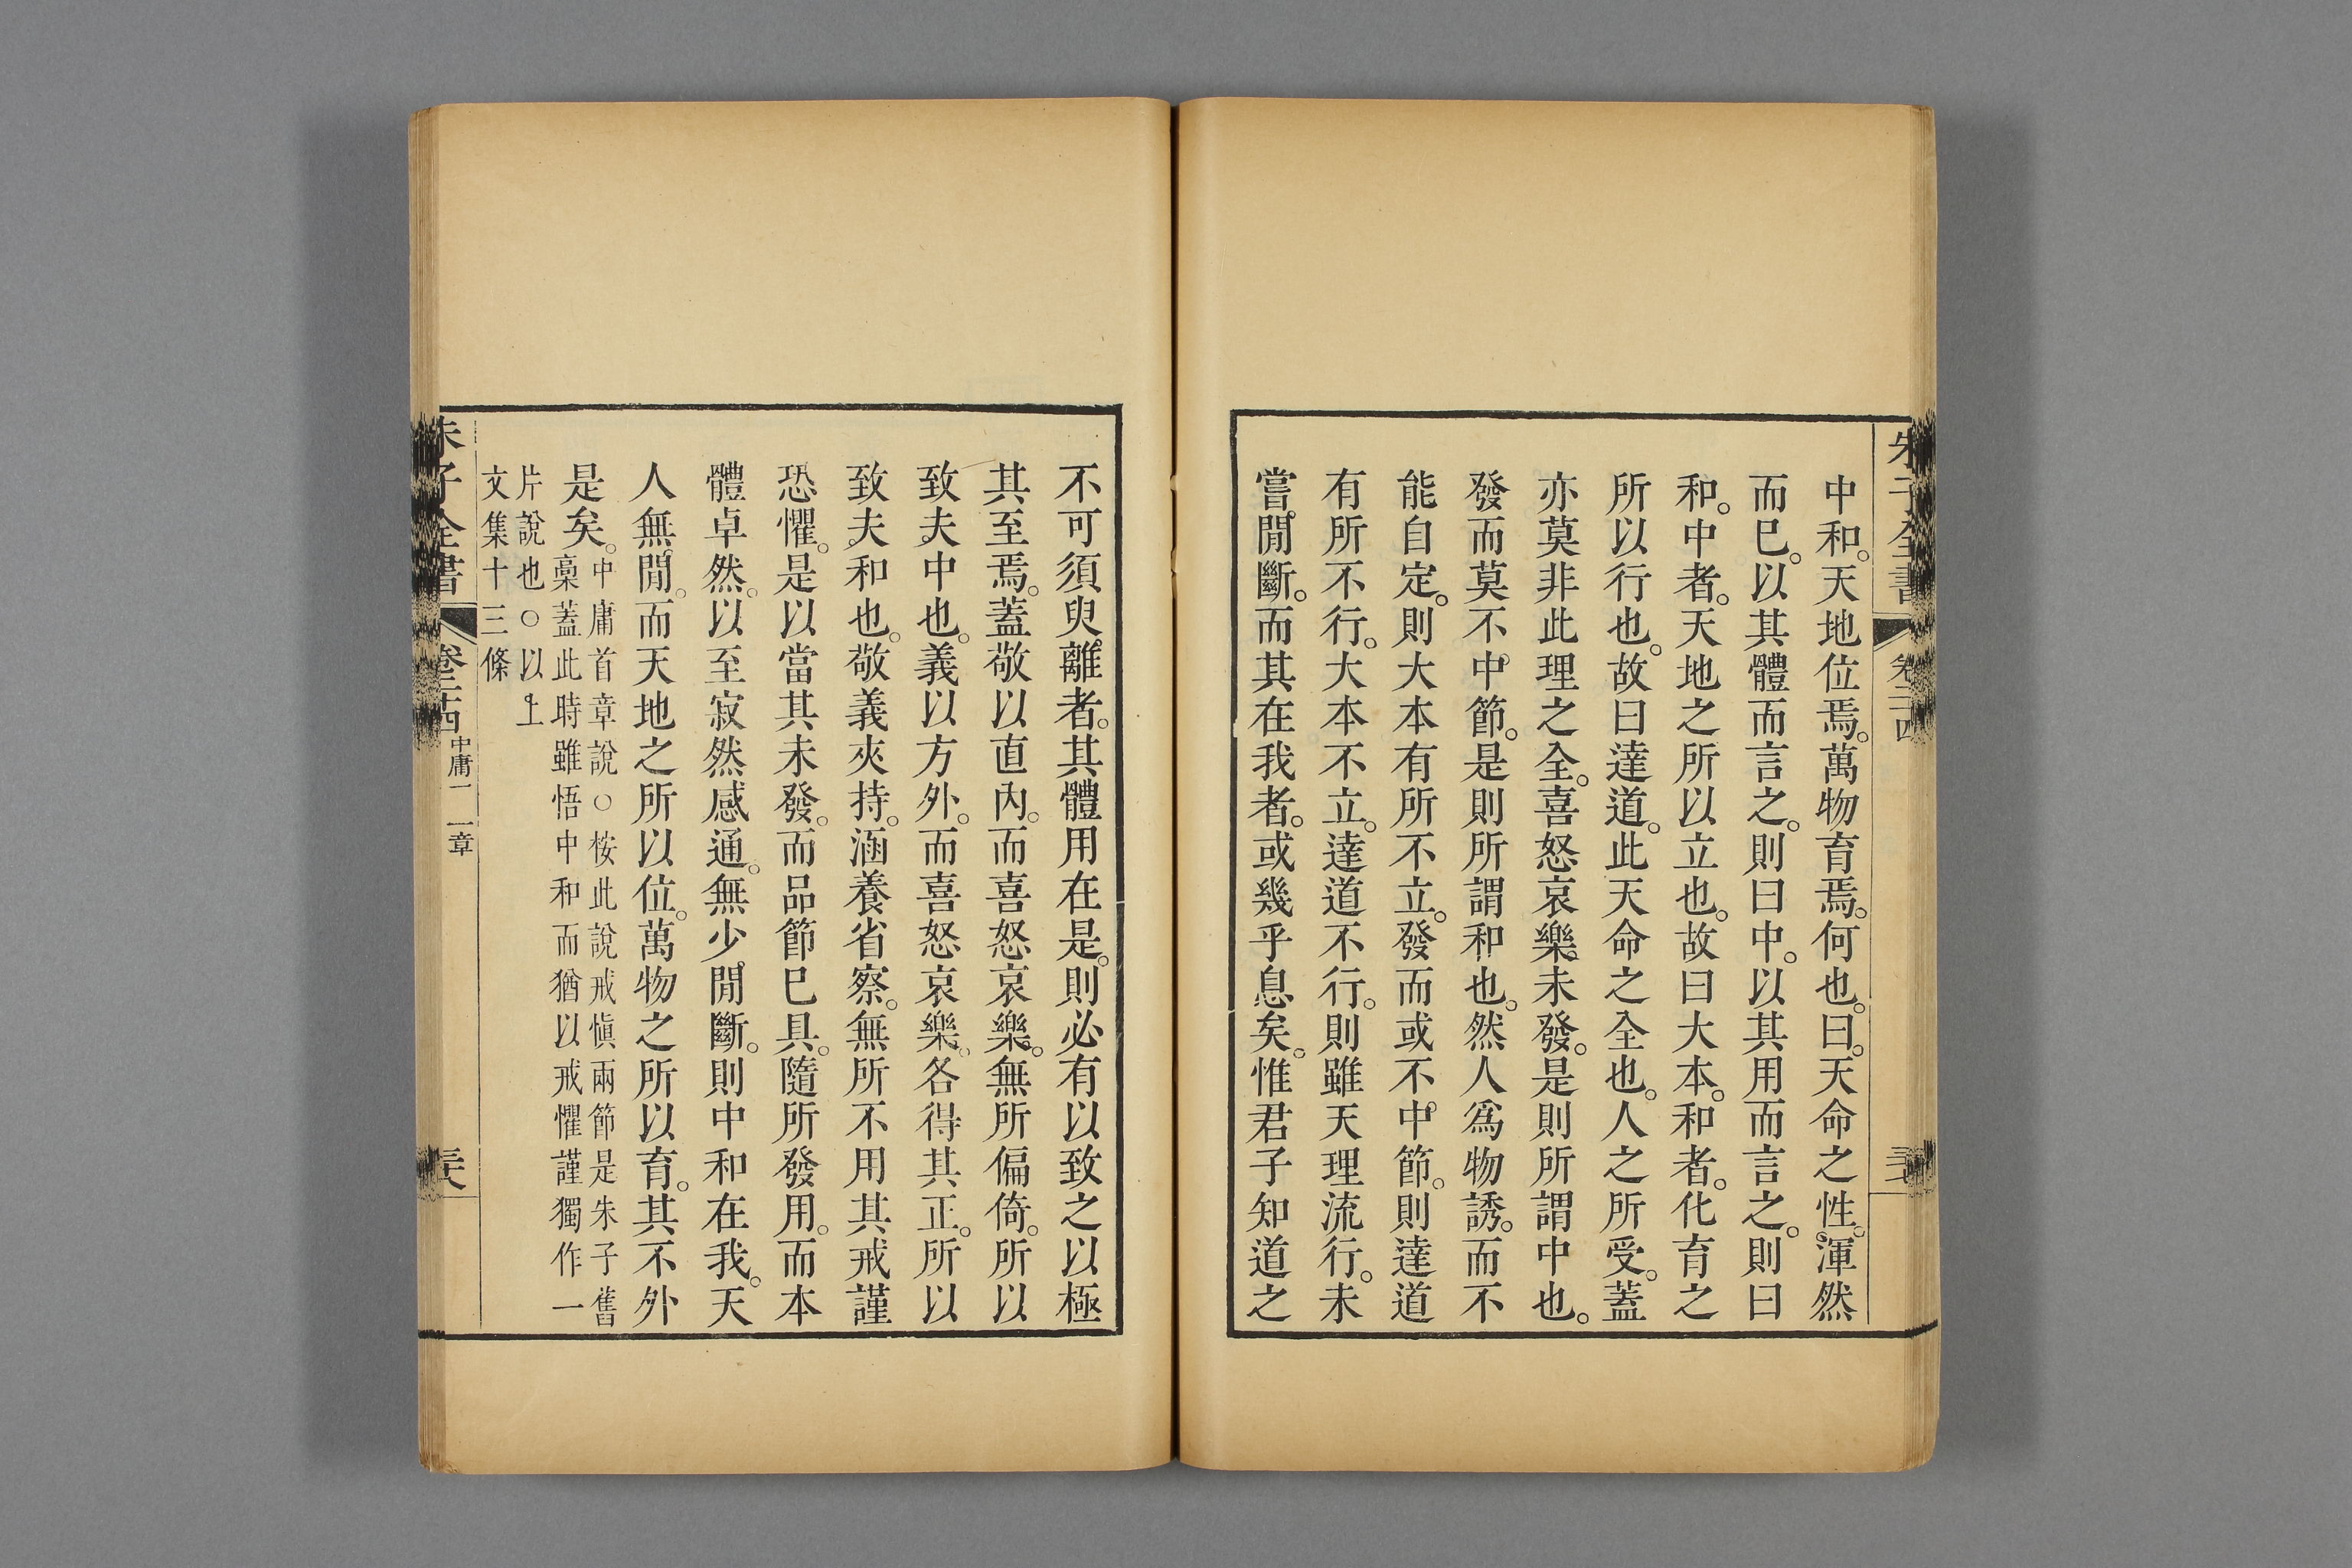 朱子全書 卷二十四
中和。天地位焉。萬物育焉。何也。曰。天命之性。渾然
而已。以其體而言之。則曰中。以其用而言之。則曰
和。中者。天地之所以立也。故曰大本。和者。化育之
所以行也。故曰達道。此天命之全也。人之所受。蓋
亦莫非此理之全。喜怒哀樂未發。是則所謂中也。
發而莫不中節。是則所謂和也。然人爲物誘。而不
能自定。則大本有所不立。發而或不中節。則達道
有所不行。大本不立。達道不行。則雖天理流行。未
嘗閒斷。而其在我者。或幾乎息矣。惟君子知道之
不可須臾離者。其體用在是。則必有以致之以極
其至焉。蓋敬以直內。而喜怒哀樂。無所偏倚。所以
致夫中也。義以方外。而喜怒哀樂。各得其正。所以
致夫和也。敬義夾持。涵養省察。無所不用其戒謹
恐懼。是以當其未發。而品節已具。隨所發用。而本
體卓然。以至寂然感通。無少閒斷。則中和在我。天
人無閒。而天地之所以位。萬物之所以育。其不外
是矣。中庸首章說○桉此說戒愼兩節是朱子舊
稾蓋此時雖悟中和而猶以戒懼謹獨作一
片說也○以上
文集十三條
朱子全書 卷二十四 中庸一 一章 三六